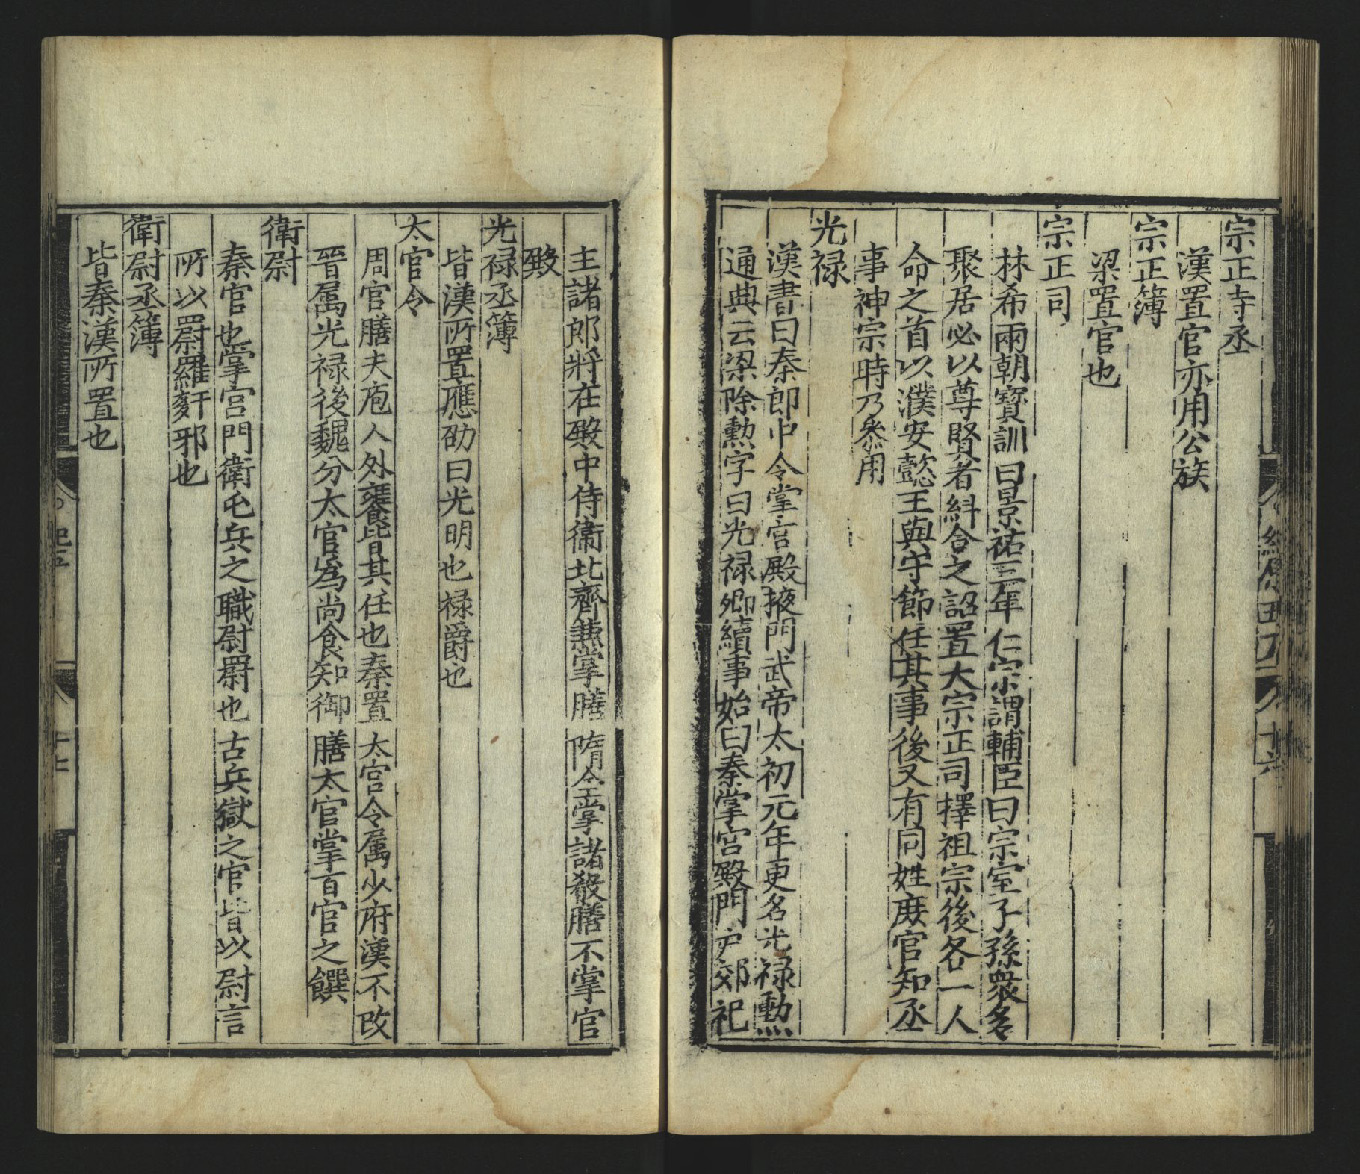 宗正寺丞
漢置官亦用公族
宗正簿
梁置官也
宗正司
林希兩朝寳訓曰景祐三年仁宗謂輔臣曰宗室子孫衆多
聚居必以尊賢者糾合之詔置大宗正司擇祖宗後各一人
命之首以濮安懿王與守節任其事後又有同姓庶官知丞
事神宗時乃叅用
光禄
漢書曰秦郎中令掌宮殿掖門武帝太初元年更名光禄勲
通典云梁除勲字曰光禄卿續事始曰秦掌宮殿門户郊祀
主諸郎將在殿中侍衞北齊兼掌膳隋全掌諸殺膳不掌宮
殿
光禄丞簿
皆漢所置應劭曰光明也禄爵也
太官令
周官膳夫庖人外饔皆其任也秦置太官令属少府漢不改
晉属光禄後魏分太官為尚食知御膳太官掌百官之饌
衛尉
秦官也掌宫門衛屯兵之職尉罻也古兵獄之官皆以尉言
所以罻羅姧邪也
衛尉丞簿
皆秦漢所置也